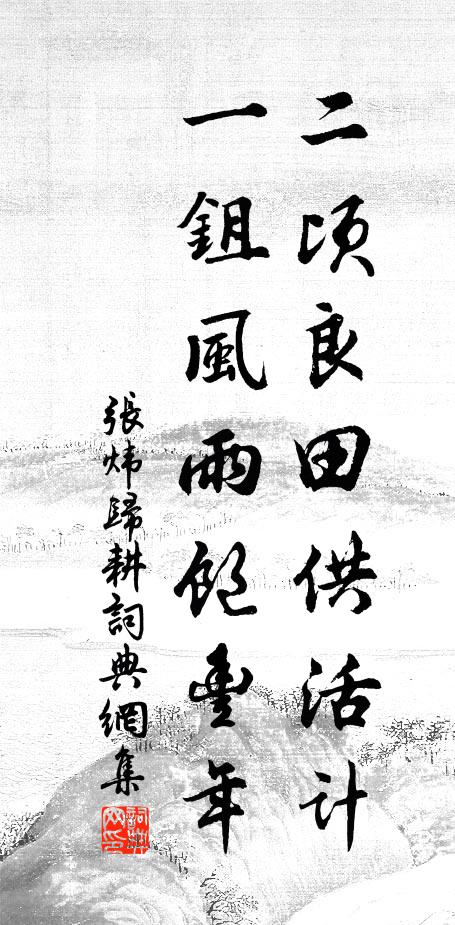 二頃良田供活計
一鉏風雨飽豐年
張煒歸耕詞典網集
詞典網印